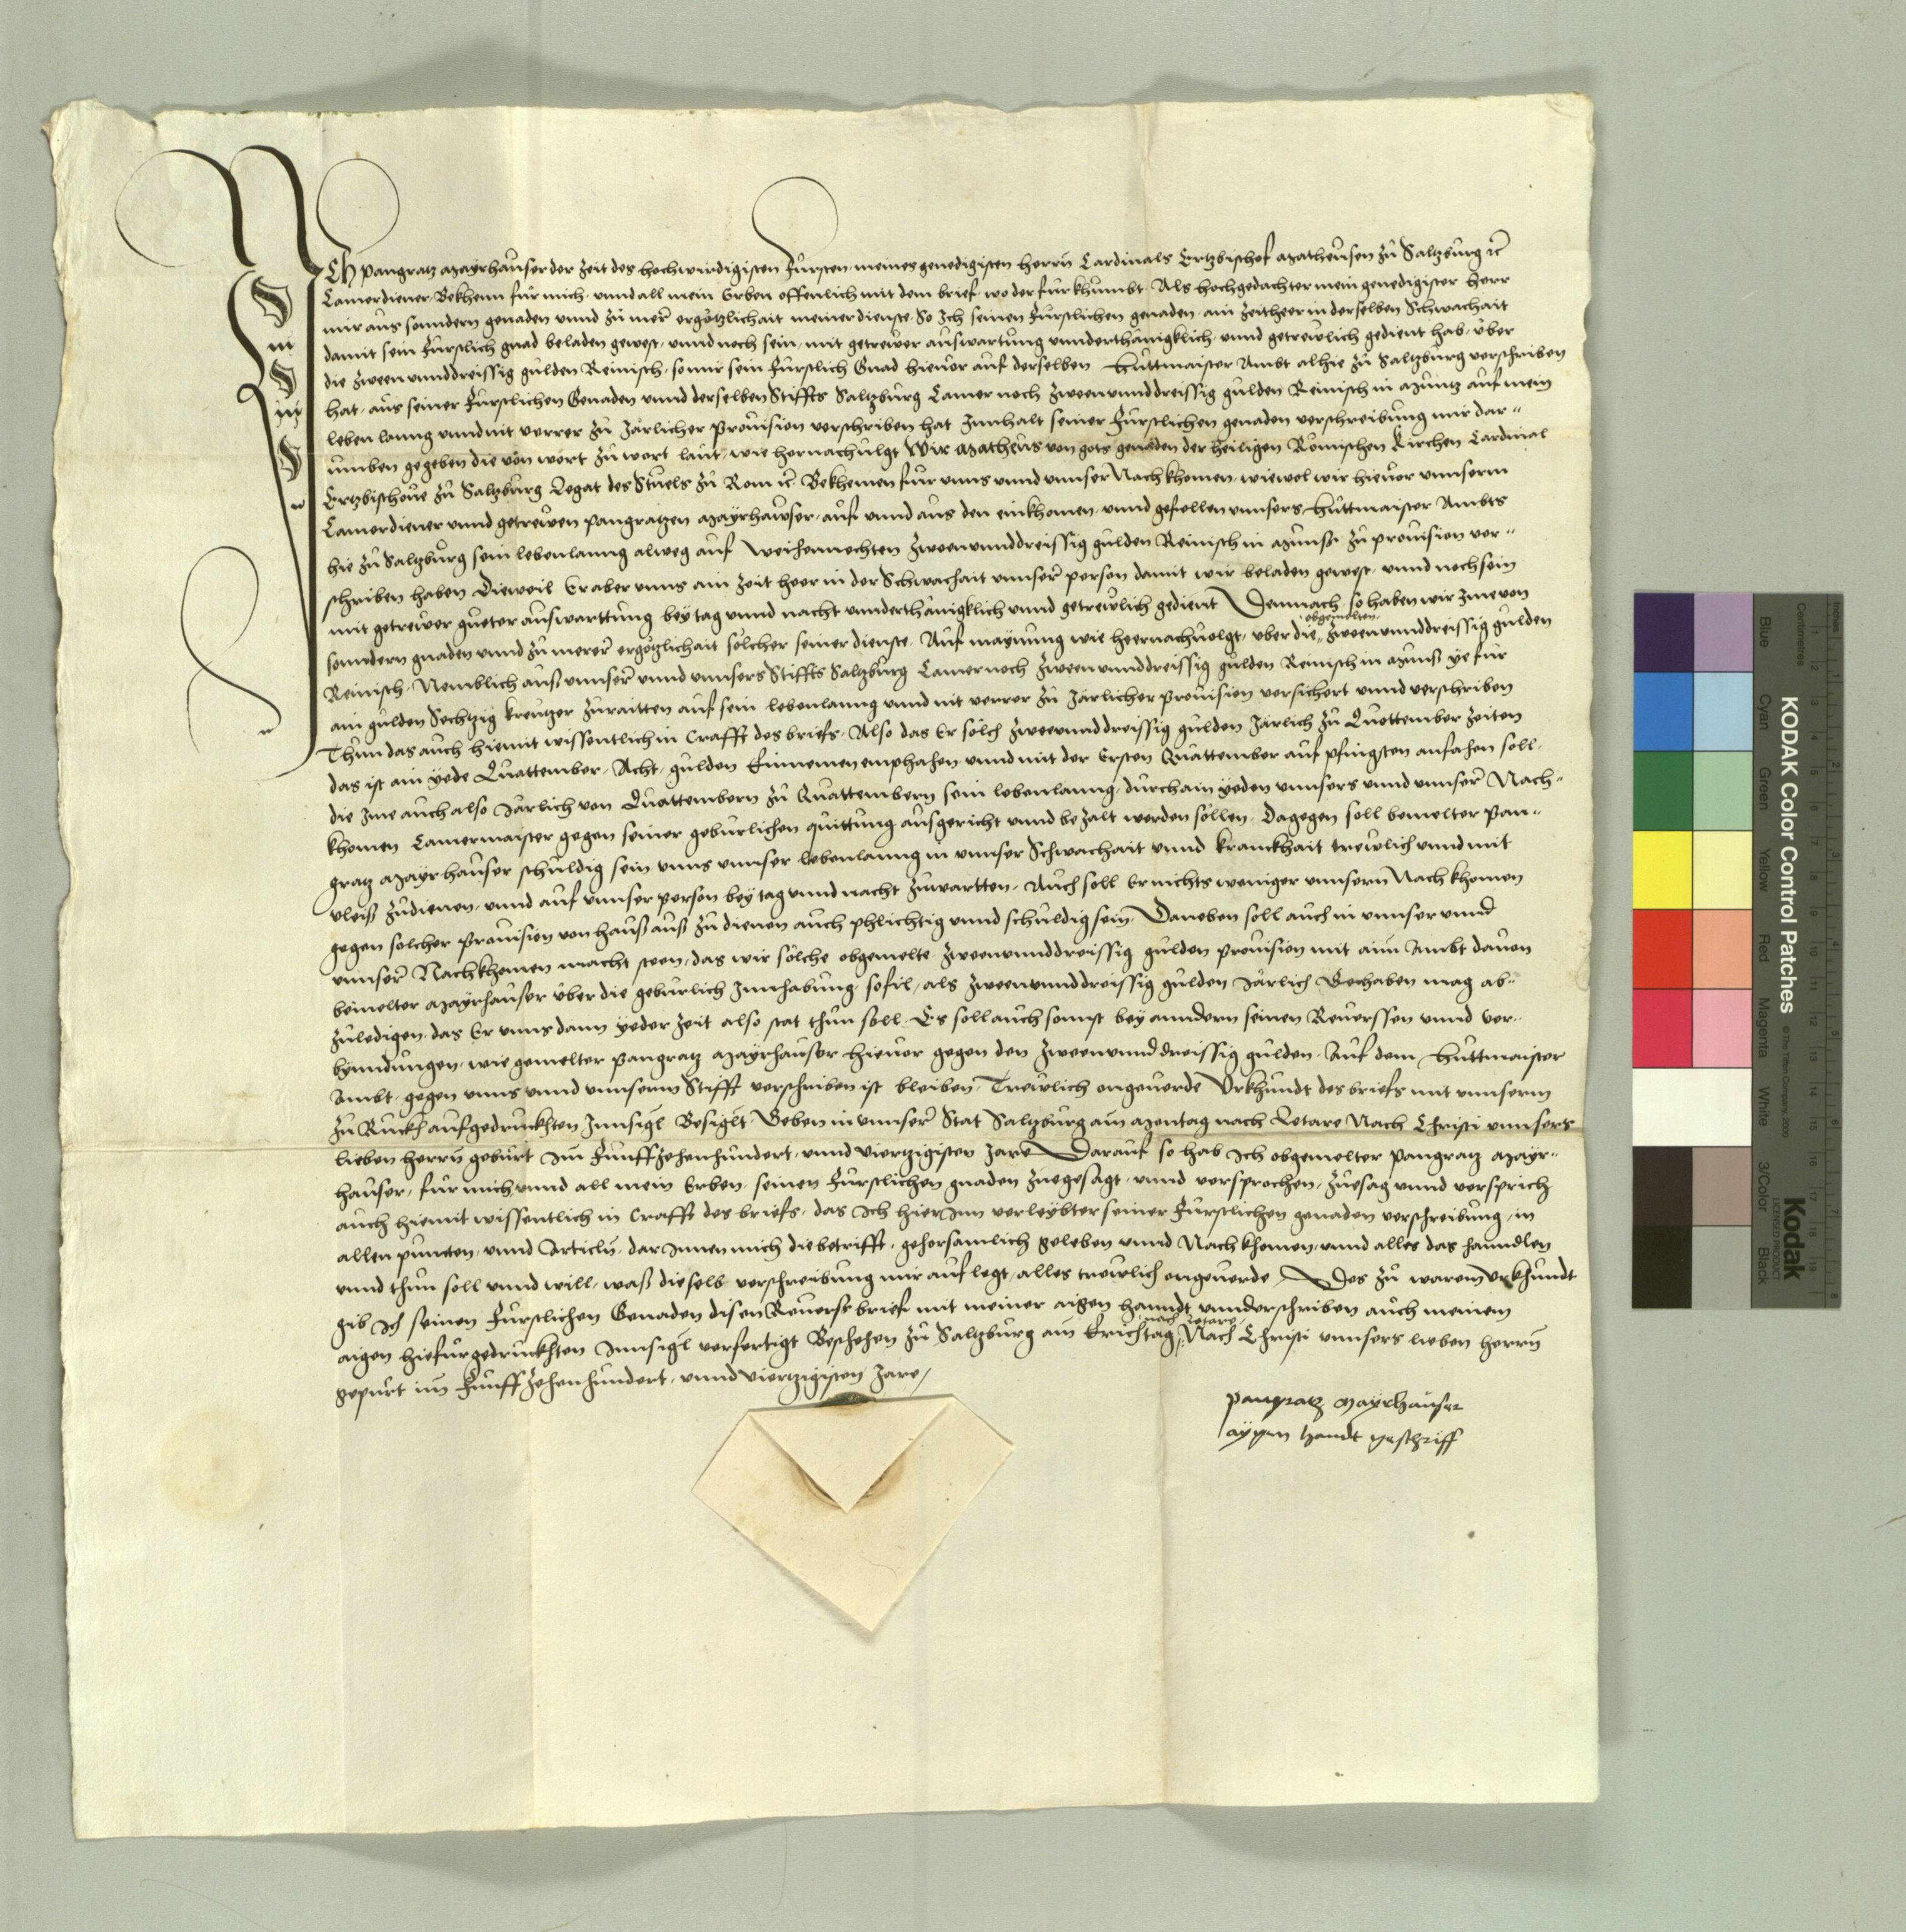 ICh Pangratz Mayrhauser der Zeit des hochwirdigisten Fürsten meines genedigisten herrn Cardinals Ertzbischof Matheusen zu Saltzburg ꝛc
Camerdiener Bekhenn für mich vnnd all mein Erben offenlich mit dem brief wo der fürkhumbt Als hochgedachter mein genedigister herr
mir aus sonndern genaden vnnd zu merer ergötzlichait meiner dienste So Ich seinen Fürstlichen genaden ain Zeitheer in derselben Schwachait
damit sein Fürstlich gnad beladen gewest vnnd noch sein mit getrewer auswartung vnnderthänigklich vnnd getrewlich gedient hab über
die zweenvnnddreissig gulden Reinisch so mir sein Fürstlich Gnad hieuor auf derselben Huttmaister Ambt alhie zu Saltzburg verschriben
hat aus seiner Fürstlichen Genaden vnnd derselben Stiffts Saltzburg Camer noch zweenvnnddreissig gulden Reinisch in Müntz auf mein
leben lanng vnnd nit verrer zu Järlicher Prouision verschriben hat Innhalt seiner Fürstlichen genaden verschreibung mir dar
umben gegeben die von wort zu wort laut wie hernachuolgt Wir Matheus von gots genaden der Heiligen Römischen Kirchen Cardinal
Ertzbischoue zu Saltzburg Legat des Stuels zu Rom ꝛc Bekhennen für vnns vnnd vnnser Nachkhomen wiewol wir hieuor vnnserm
Camerdiener vnnd getrewen Pangratzen Mayrhawser auf vnnd aus den einkhomen vnnd gefellen vnnsers Huttmaister Ambts
hie zu Saltzburg sein lebenlanng alweg auf Weihennechten zweenvnnddreissig gulden Reinisch in Munss zu prouision ver
schriben haben Dieweil Er aber vnns ain Zeit heer in der Schwachait vnnser person damit wir beladen gewest vnnd noch sein
mit getrewer gueter auswarttung bey tag vnnd nacht vnnderthänigklich vnnd getrewlich gedient Demnach so haben wir Ime von
obgemelten
sonndern gnaden vnnd zu merer ergötzlichait solcher seiner dienste Auf maynung wie heernachuolgt über die zweenvnnddreissig gulden
Reinisch Nemblich auß vnnser vnnd vnnsers Stiffts Saltzburg Camer noch zweenvnnddreissig gulden Reinisch in Munß ye für
ain gulden Sechtzig kreutzer zuraitten auf sein lebenlanng vnnd nit verrer zu Järlicher prouision versichert vnnd verschriben
Thun das auch hiemit wissentlich in Crafft des briefs Also das Er solch zweenvnnddreissig gulden Järlich zu Quottember Zeiten
das ist ain yede Quattember Acht gulden Einnemen emphahen vnnd mit der Ersten Quattember auf Pfingsten anfahen soll
die Ime auch also Järlich von Quattembern zu Quattembern sein lebenlanng durch ain yeden vnnsers vnnd vnnser Nach
khomen Camermaister gegen seiner geburlichen quittung ausgericht vnnd bezalt werden sollen Dagegen soll bemelter Pan
gratz Mayrhauser schuldig sein vnns vnnser lebenlanng in vnnser Schwachait vnnd kranckhait trewlich vnnd mit
vleiß zudienen vnnd auf vnnser person bey tag vnnd nacht zuwartten Auch soll Er nichts weniger vnnsern Nachkhomen
gegen solcher Prouision von hauß auß zu dienen auch phlichtig vnnd schuldig sein Daneben soll auch in vnnser vnnd
vnnser Nachkhomen macht steen das wir solche obgemelte zweenvnnddreissig gulden prouision mit aim Ambt dauon
bemelter Mayrhauser über die geburlich Innhabung sofil als zweenvnnddreissig gulden Järlich Gehaben mag ab
zuledigen das Er vnns dann yeder Zeit also stat thun soll Es soll auch sonnst bey anndern seinen Reuerssen vnnd ver
bynndungen wie gemelter Pangratz Mayrhauser hieuor gegen den zweenvnnddreissig gulden Auf dem Huttmaister
Ambt gegen vnns vnnd vnnserm Stifft verschriben ist bleiben Trewlich ongeuerde Vrkhundt des briefs mit vnnserm
zu Ruckh aufgedruckhten Innsigl Besiglt Geben in vnnser Stat Saltzburg am Montag nach Letare Nach Christi vnnsers
lieben herrn geburt im Funffzehenhundert vnnd Viertzigisten Jare Darauf so hab Ich obgemelter Pangratz Mayr
hauser für mich vnnd all mein Erben seinen Fürstlichen gnaden zuegesagt vnnd versprochen zuesag vnnd versprich
auch hiemit wissentlich in Crafft des briefs das Ich hierinn verleybter seiner Fürstlichen genaden verschreibung in
allen puncten vnnd Articln darinnen mich die betrifft gehorsamlich geleben vnnd Nachkhomen vnnd alles das hanndlen
vnnd thun soll vnnd will waß dieselb verschreibung mir auflegt alles trewlich ongeuerde Des zu warem Vrkhundt
gib Ich seinen Fürstlichen Genaden disen Reuerss brief mit meiner aigen hanndt vnnderschriben auch meinem
nach Letare
aigen hiefürgedruckhten Innsigl verfertigt Beschehen zu Saltzburg am Erichtag Nach Christi vnnsers lieben herrn
gepurt im Funffzehenhundert vnnd Viertzigisten Jare
Pangratz Mayrhauser
aygen handt geschriff
KODAK Color Control Patches
© The Tiffen Company, 2000
Kodak
LICENSED PRODUCT
Blue Cyan Green Yellow Red Magenta White 3/Color Black
Centimetres
Inches